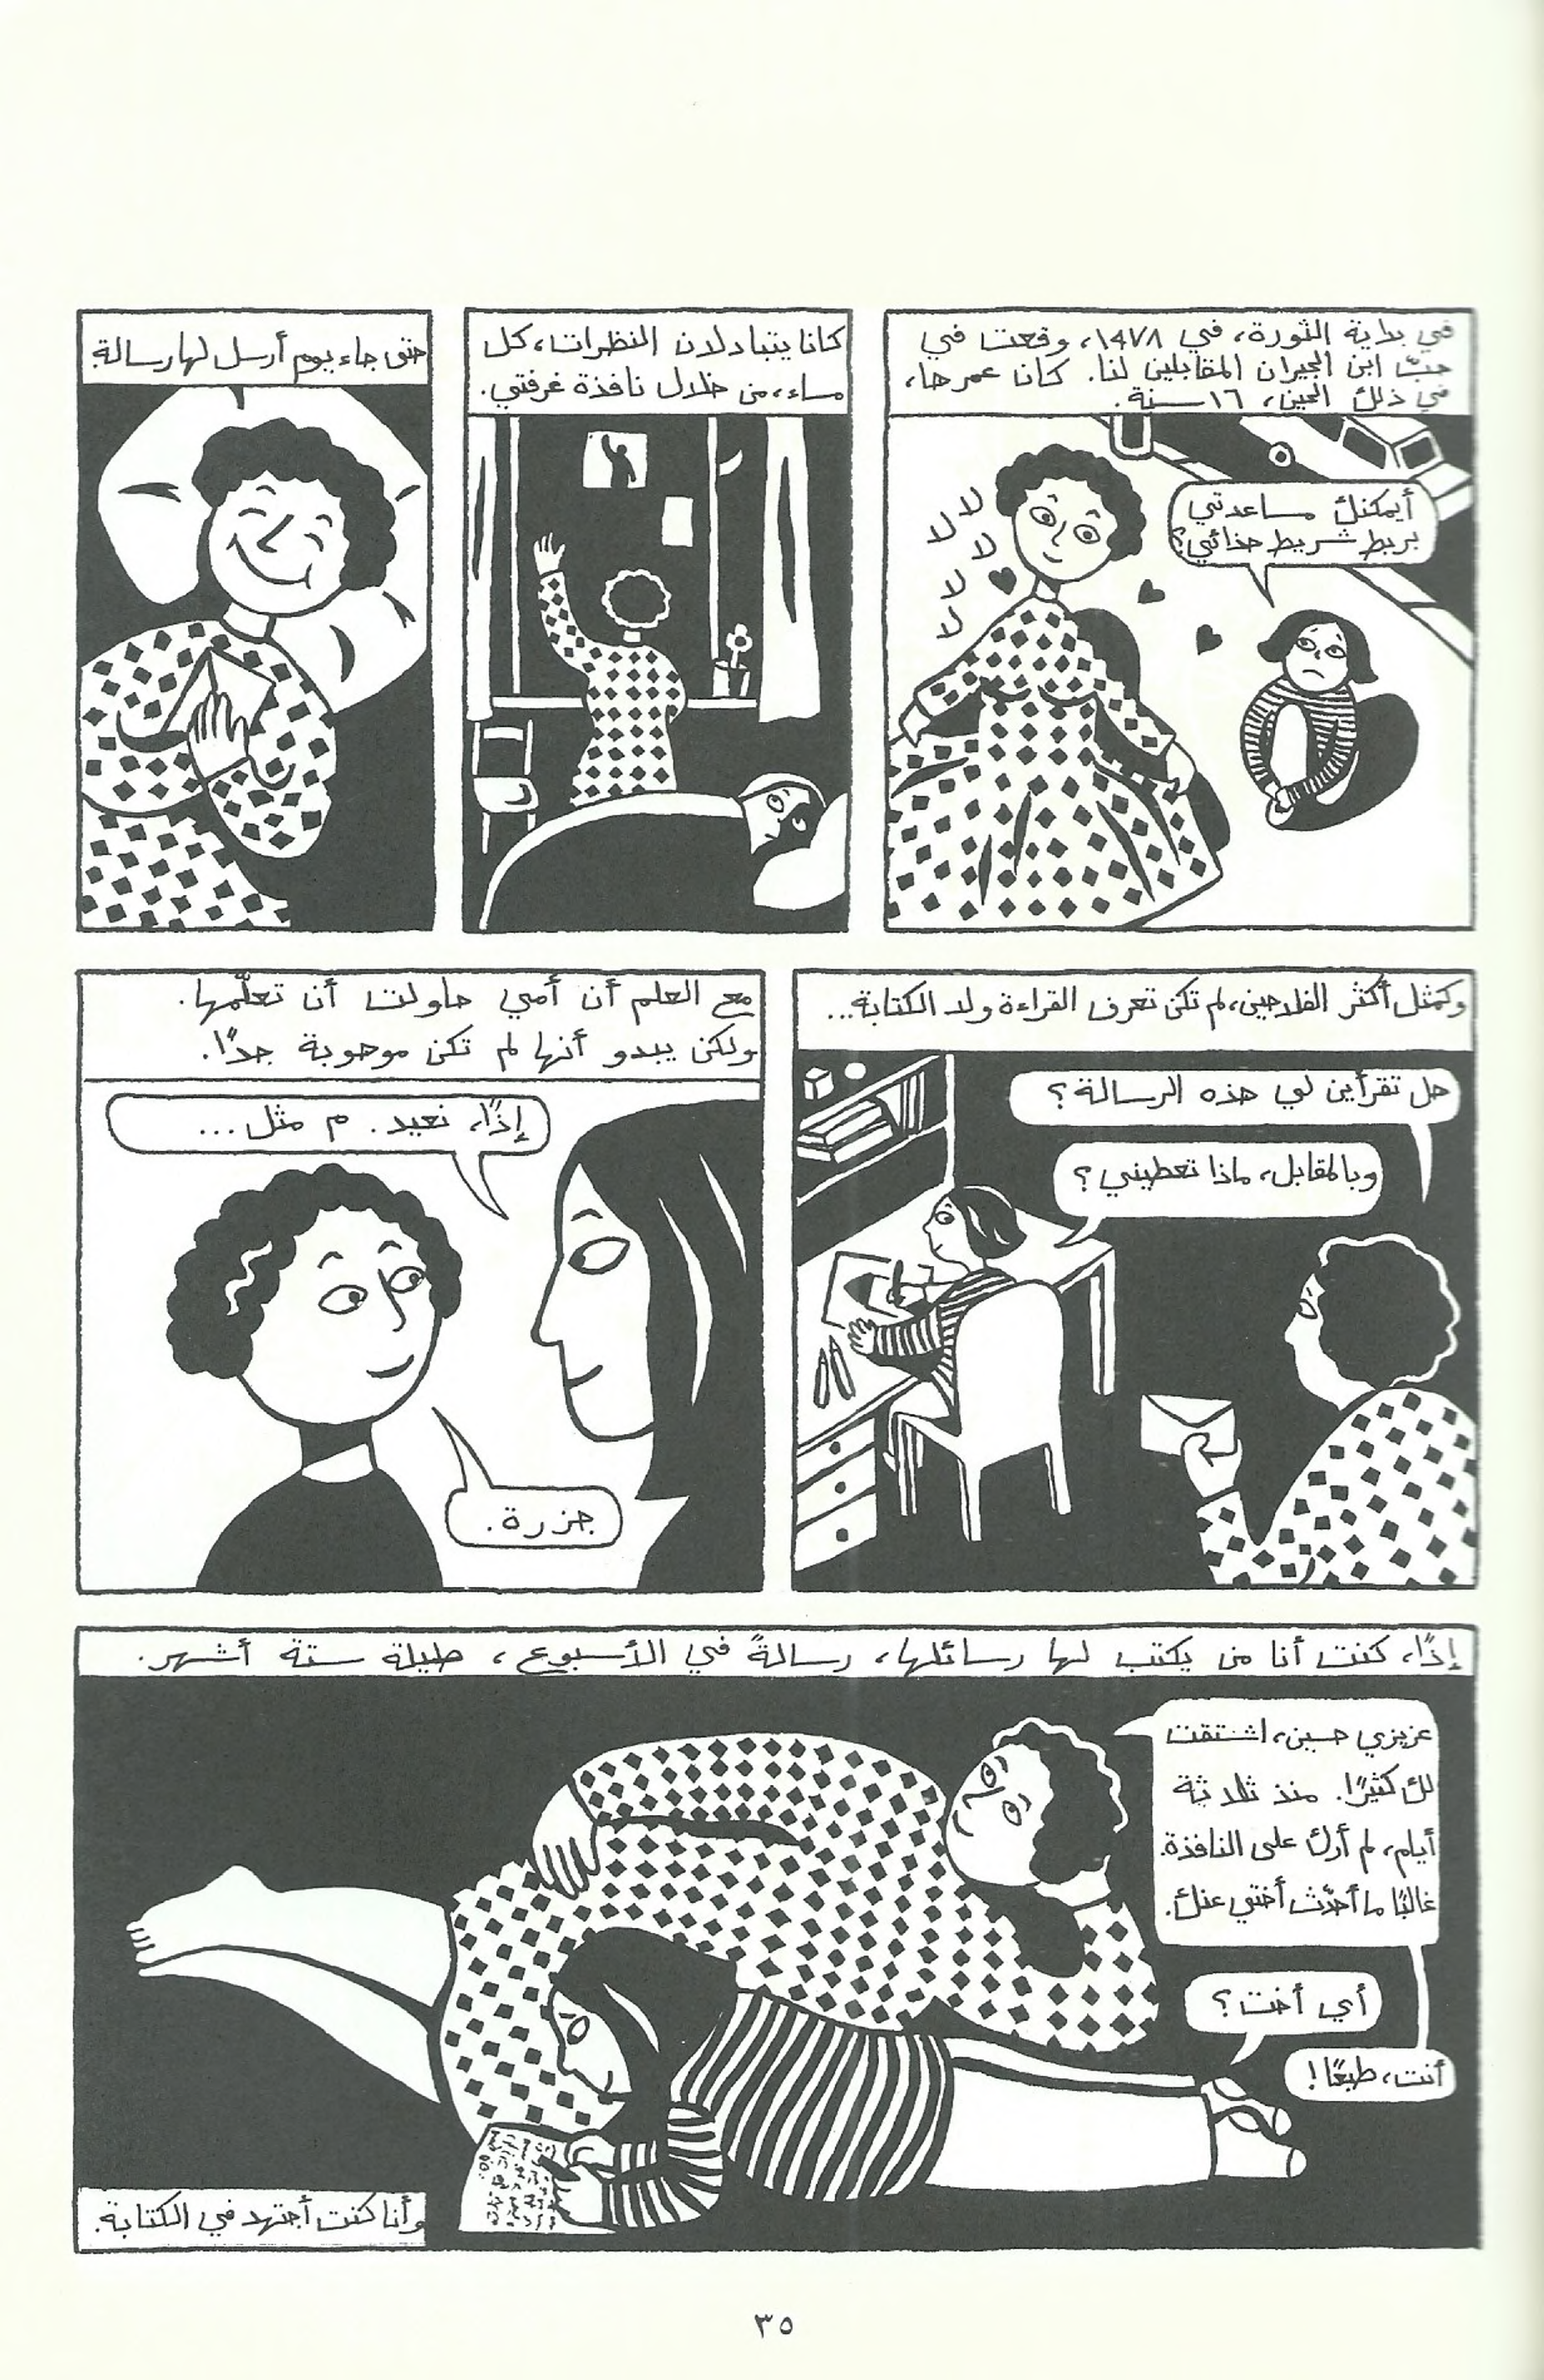 في بداية الثورة، في ١٤٧٨، وقعت في
حبّ ابن الجيران المقابلين لنا. كان عمرها،
في ذلك الحين، ١٦ سنة.
أيمكنك مساعدتي
بربط شريط حذائي؟
لا
لا
لا
لا
لا
كانا يتبادلان النظرات، كل
مساء، من خلال نافذة غرفتي.
حتى جاء يوم أرسل لها رسالة.
وكمثل أكثر الفلاحين، لم تكن تعرف القراءة ولا الكتابة...
هل تقرأين لي هذه الرسالة؟
وبالمقابل، ماذا تعطيني؟
مع العلم أن أمي حاولت أن تعلّمها.
ولكن يبدو أنها لم تكن موهوبة جدًا.
إذًا، نعيد. م مثل...
جزرة.
إذًا، كنت أنا من يكتب لها رسائلها، رسالةً في الأسبوع، طيلة ستة أشهر.
عزيزي حسين، اشتقت
لك كثيرًا. منذ ثلاثة
أيام، لم أرك على النافذة.
غالبًا ما أحدّث أختي عنك.
أي أخت؟
أنت، طبعًا!
وأنا كنت أجتهد في الكتابة.
٣٥